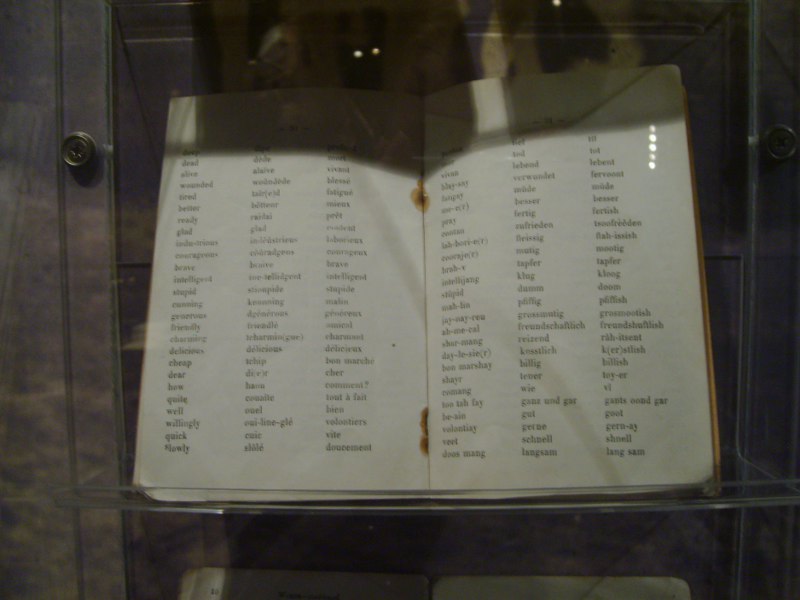 dead dède mort
alive alaïve vivant
wounded woûndède blessé
tired taïr(e)d fatigué
better bêtteur mieux
ready raidai prêt
glad glad content
industrious laborieux
courageous courageux
brave braive brave
intelligent intelligent
stupid stioupide stupide
cunning kenning malin
generous dgénérous généreux
friendly friendlé amical
charming tcharmin(gue) charmant
delicious délicious délicieux
cheap tchip bon marché
dear di(e)r cher
how haou comment?
quite couaïte tout à fait
well ouel bien
willingly oui-line-glé volontiers
quick cuic vite
slowly slôlé doucement
tief tîf
tod tot
vivan lebend lebent
blay-say verwundet fervoont
fatigay müde müde
me-e(r) besser besser
pray fertig fertish
contan zufrieden tsoofrééden
lah-bori-e(r) fleissig flah-issish
cooraje(r) mutig mootig
brah-v tapfer tapfer
intellijang klug kloog
stüpid dumm doom
mah-lin pfiffig pfiffish
jay-nay-reu grossmutig grosmootish
ah-me-cal freundschaftlich freundshuftlish
shar-mang reizend râh-itsent
day-le-sie(r) kostlich k(er)stlish
bon marshay billig billish
shayr teuer toy-er
comang wie vî
too tah fay ganz und gar gants oond gar
be-ain gut goot
volontiay gerne gern-ay
veet schnell shnell
doos mang langsam lang sam